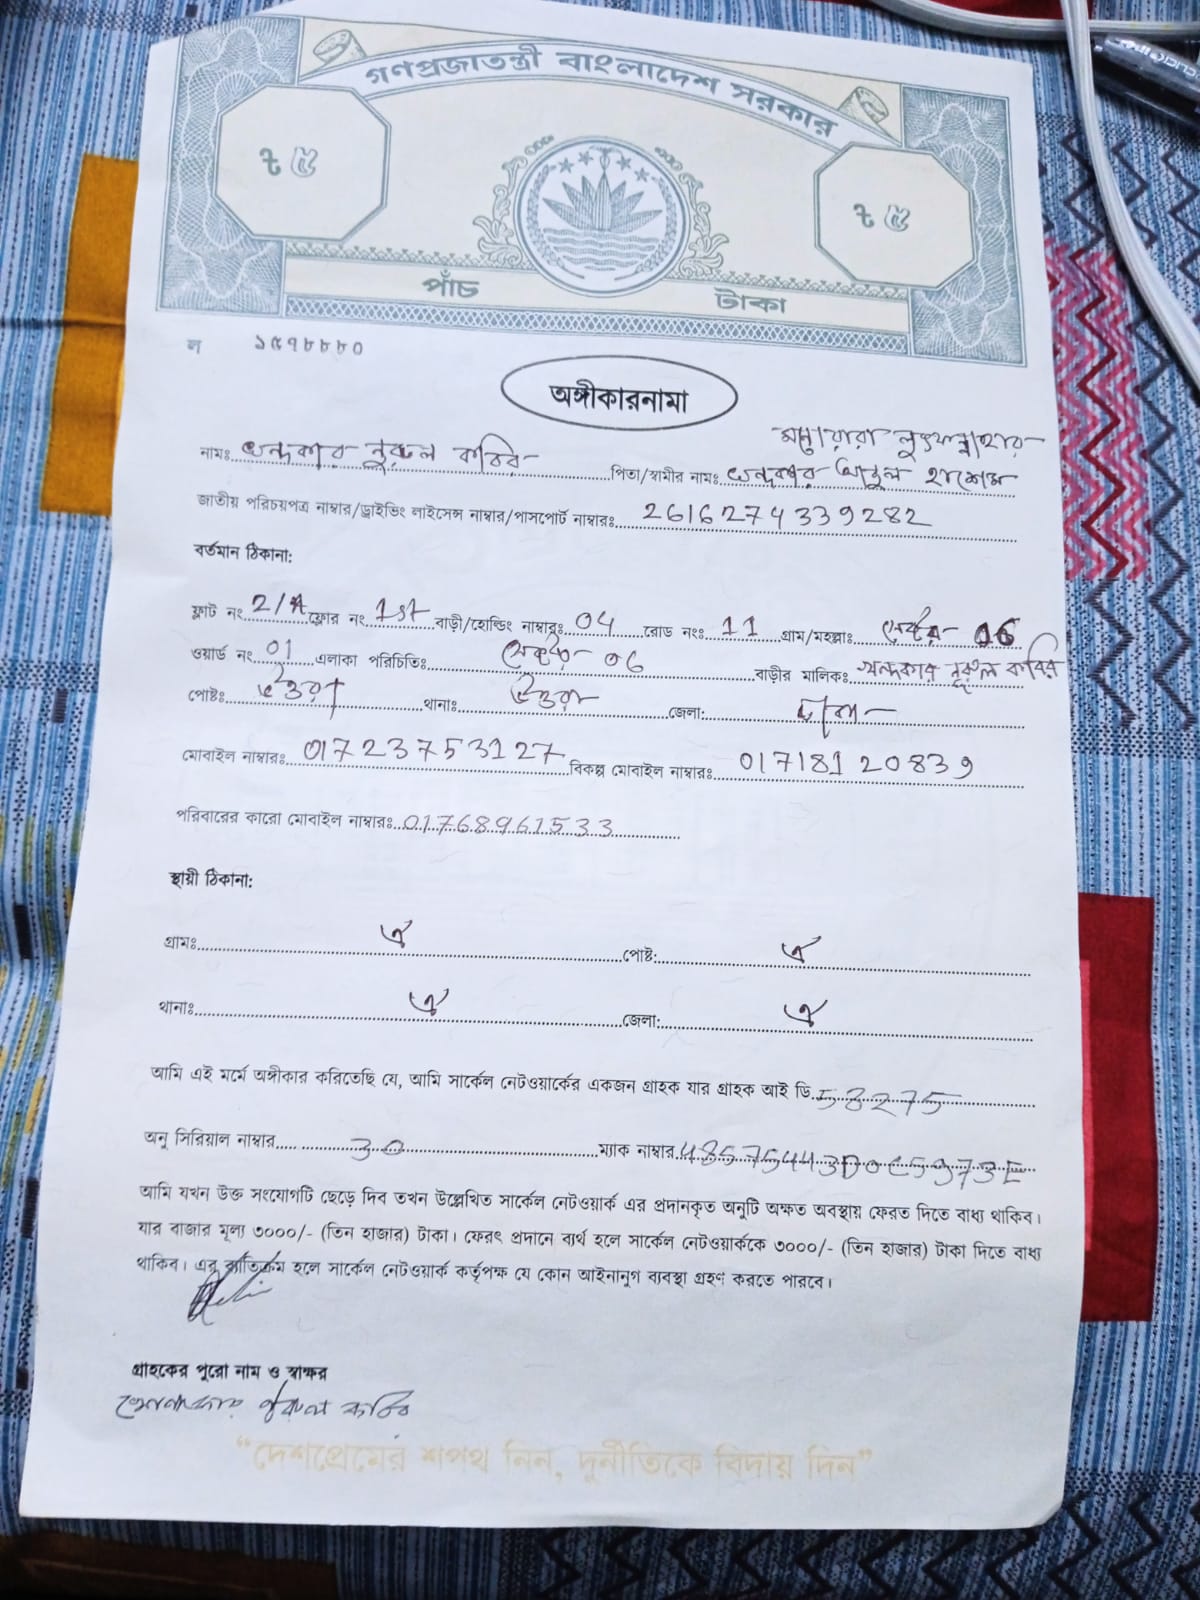 গণপ্রজাতন্ত্রী বাংলাদেশ সরকার
৳ ৫
৳ ৫
পাঁচ টাকা
ল ১৫৭৮৮৮০
অঙ্গীকারনামা
মনোয়ারা লুৎফন্নাহার
নামঃ খন্দকার নুরুল কবির পিতা/স্বামীর নামঃ খন্দকার আবুল হাশেম
জাতীয় পরিচয়পত্র নাম্বার/ড্রাইভিং লাইসেন্স নাম্বার/পাসপোর্ট নাম্বারঃ 2616274339282
বর্তমান ঠিকানা:
ফ্লাট নং 2/A ফ্লোর নং 1st বাড়ী/হোল্ডিং নাম্বারঃ 04 রোড নংঃ 11 গ্রাম/মহল্লাঃ সেক্টর- 06
ওয়ার্ড নং 01 এলাকা পরিচিতিঃ সেক্টর- ০6 বাড়ীর মালিকঃ খন্দকার নুরুল কবির
পোষ্টঃ উত্তরা থানাঃ উত্তরা জেলা: ঢাকা
মোবাইল নাম্বারঃ 01723753127 বিকল্প মোবাইল নাম্বারঃ 01718120839
পরিবারের কারো মোবাইল নাম্বারঃ 01768961533
স্থায়ী ঠিকানা:
গ্রামঃ ঐ পোষ্ট: ঐ
থানাঃ ঐ জেলা: ঐ
আমি এই মর্মে অঙ্গীকার করিতেছি যে, আমি সার্কেল নেটওয়ার্কের একজন গ্রাহক যার গ্রাহক আই ডি 58275
অনু সিরিয়াল নাম্বার 30 ম্যাক নাম্বার 48575443D0C5973E
আমি যখন উক্ত সংযোগটি ছেড়ে দিব তখন উল্লেখিত সার্কেল নেটওয়ার্ক এর প্রদানকৃত অনুটি অক্ষত অবস্থায় ফেরত দিতে বাধ্য থাকিব।
যার বাজার মূল্য ৩০০০/- (তিন হাজার) টাকা। ফেরৎ প্রদানে ব্যর্থ হলে সার্কেল নেটওয়ার্ককে ৩০০০/- (তিন হাজার) টাকা দিতে বাধ্য
থাকিব। এর ব্যতিক্রম হলে সার্কেল নেটওয়ার্ক কর্তৃপক্ষ যে কোন আইনানুগ ব্যবস্থা গ্রহণ করতে পারবে।
গ্রাহকের পুরো নাম ও স্বাক্ষর
খোন্দকার নুরুল কবির
“দেশপ্রেমের শপথ নিন, দুর্নীতিকে বিদায় দিন”